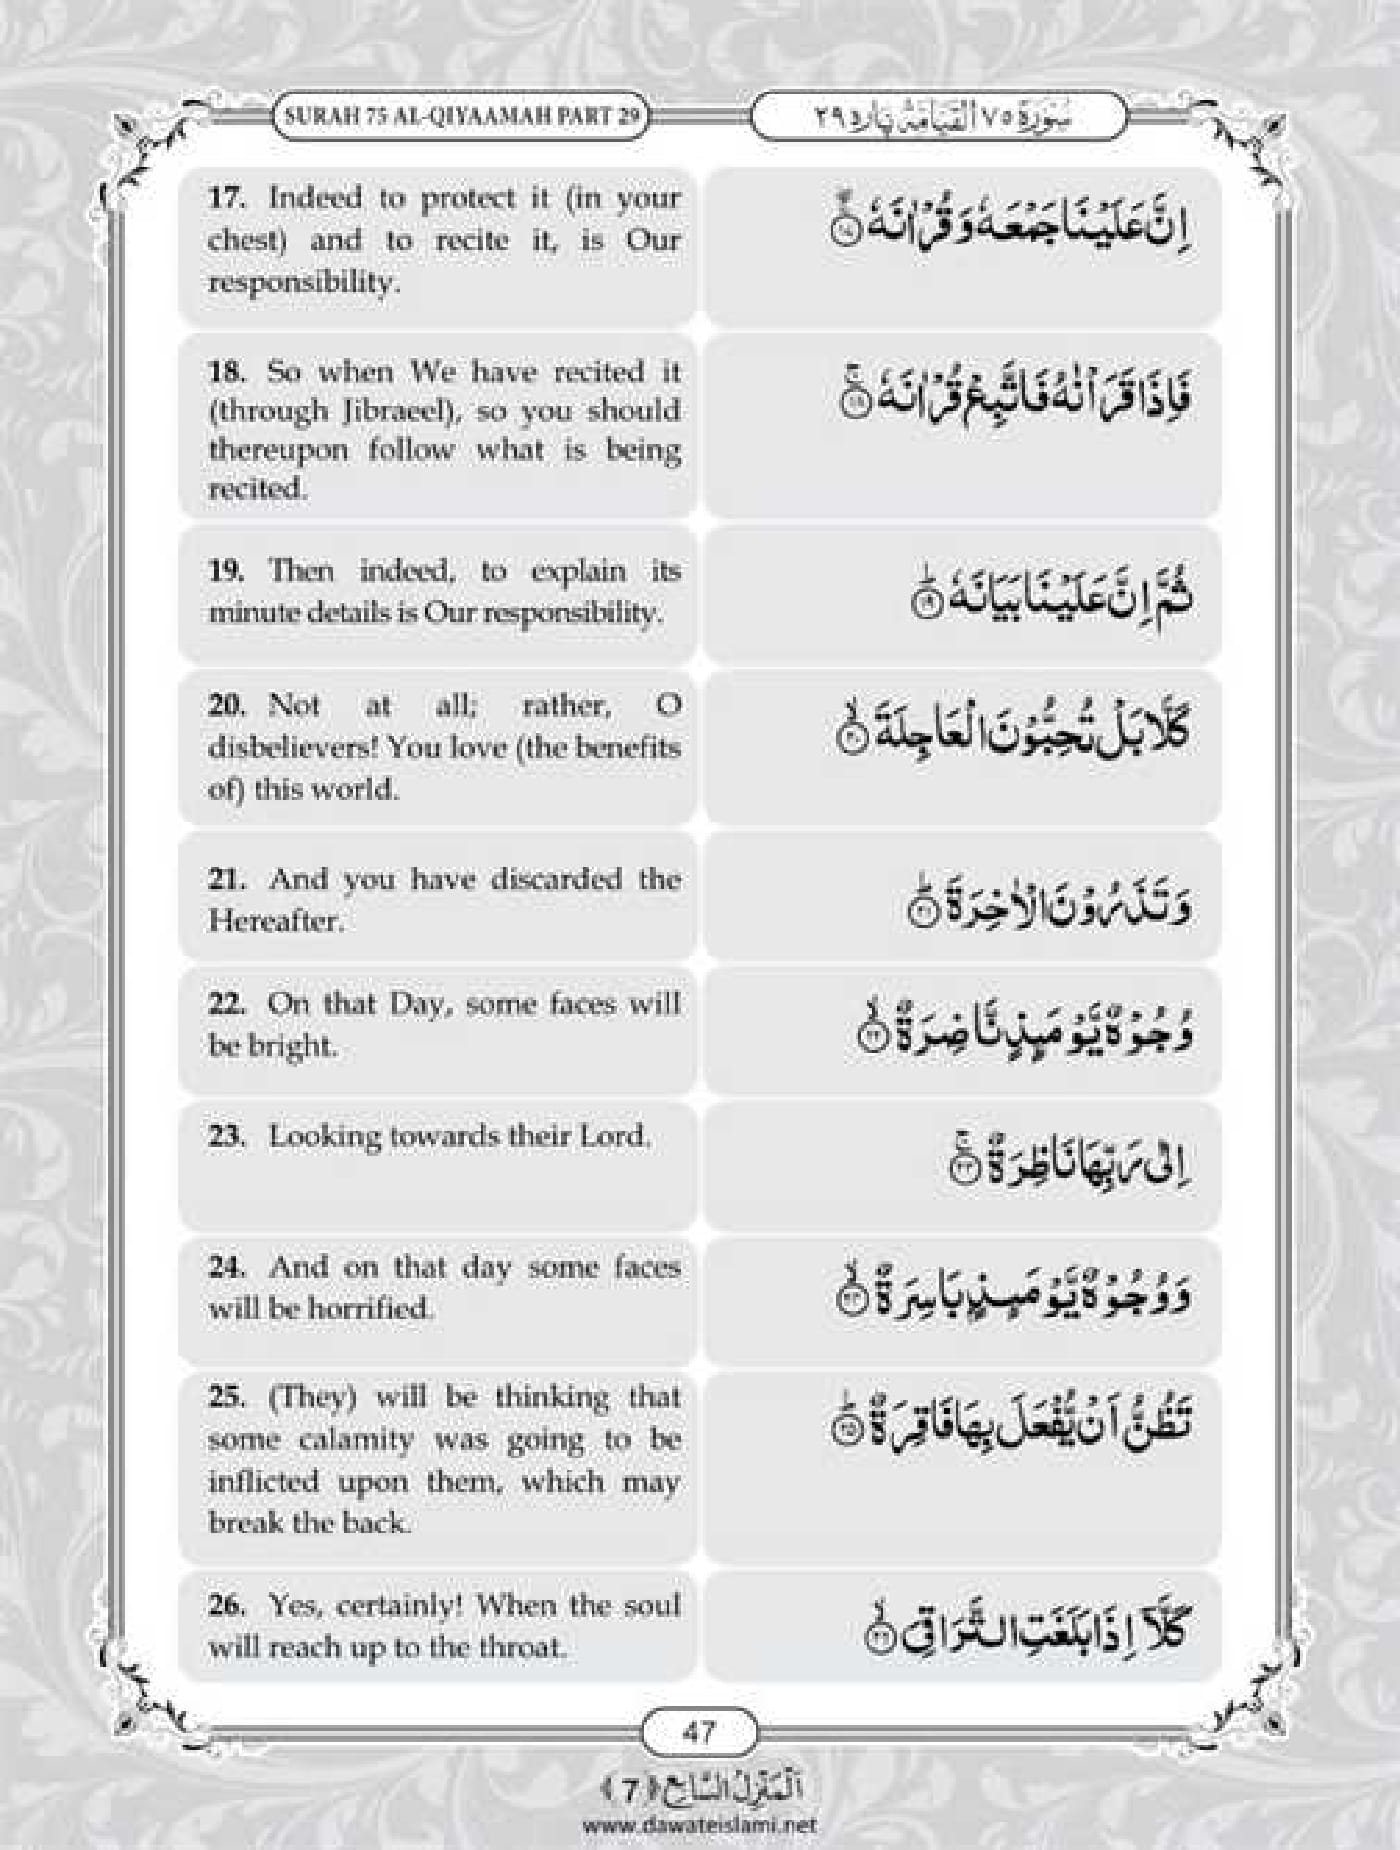 SURAH 75 AL-QIYAAMAH PART 29
سُوْرَةُ ٧٥ اَلْقِيَامَةُ پَارہ ٢٩
17. Indeed to protect it (in your
chest) and to recite it, is Our
responsibility.
اِنَّ عَلَيْنَا جَمْعَهٗ وَ قُرْاٰنَهٗ ۚۖ ﴿۱۷﴾
18. So when We have recited it
(through Jibraeel), so you should
thereupon follow what is being
recited.
فَاِذَا قَرَاْنٰهُ فَاتَّبِعْ قُرْاٰنَهٗ ۚ ﴿۱۸﴾
19. Then indeed, to explain its
minute details is Our responsibility.
ثُمَّ اِنَّ عَلَيْنَا بَيَانَهٗ ؕ ﴿۱۹﴾
20. Not at all; rather, O
disbelievers! You love (the benefits
of) this world.
كَلَّا بَلْ تُحِبُّوْنَ الْعَاجِلَةَ ۙ ﴿۲۰﴾
21. And you have discarded the
Hereafter.
وَ تَذَرُوْنَ الْاٰخِرَةَ ؕ ﴿۲۱﴾
22. On that Day, some faces will
be bright.
وُجُوْهٌ يَّوْمَىِٕذٍ نَّاضِرَةٌ ۙ ﴿۲۲﴾
23. Looking towards their Lord.
اِلٰى رَبِّهَا نَاظِرَةٌ ۚ ﴿۲۳﴾
24. And on that day some faces
will be horrified.
وَ وُجُوْهٌ يَّوْمَىِٕذٍۭ بَاسِرَةٌ ۙ ﴿۲۴﴾
25. (They) will be thinking that
some calamity was going to be
inflicted upon them, which may
break the back.
تَظُنُّ اَنْ يُّفْعَلَ بِهَا فَاقِرَةٌ ؕ ﴿۲۵﴾
26. Yes, certainly! When the soul
will reach up to the throat.
كَلَّاۤ اِذَا بَلَغَتِ التَّرَاقِیَ ۙ ﴿۲۶﴾
47
اَلْمَنْزِلُ السَّابِع ﴿7﴾
www.dawateislami.net